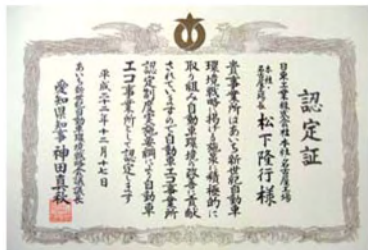 認定証
日東工業株式会社 本社・名古屋工場
本社・名古屋工場長 松下隆行様
貴事業所はあいち新世紀自動車
環境戦略に掲げる施策に積極的に
取り組み自動車環境の改善に貢献
されていますので自動車エコ事業所
認定制度実施要綱により自動車
エコ事業所として認定します
平成二十二年十二月十七日
あいち新世紀自動車環境戦略会議議長
愛知県知事 神田真秋